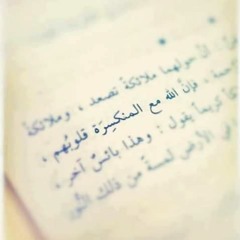 : أنّ حولهما ملائكةً تصعد ، وملائكةً
، فإنّ الله مع المنكسِرة قلوبُهم ،
كريماً يقول : وهذا يائسٌ آخر ،
في الأرض لمسةً من ذلك النُّور